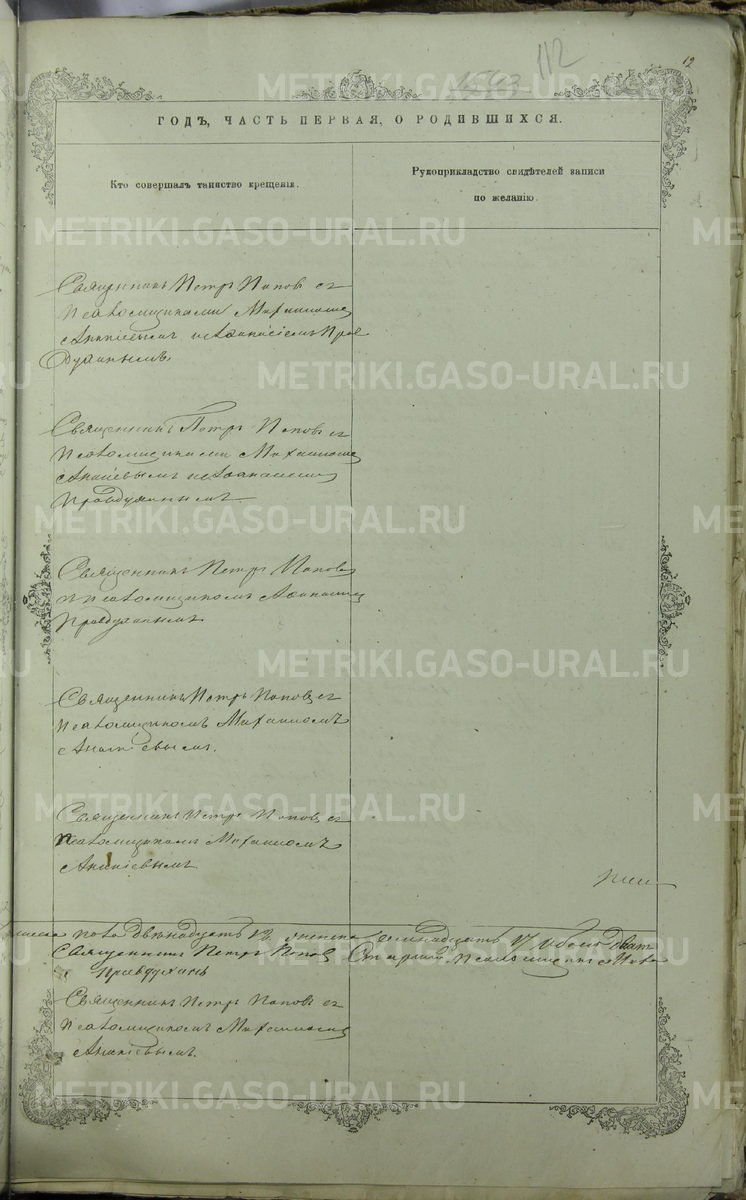 112
12
ГОДЪ, ЧАСТЬ ПЕРВАЯ, О РОДИВШИХСЯ.
Кто совершалъ таинство крещенія.
Рукоприкладство свидѣтелей записи
по желанію.
METRIKI.GASO-URAL.RU
Священникъ Петръ Поповъ съ
Псаломщиками Михаиломъ
Ананьевымъ и Афанасіемъ Прав
духинымъ
Священникъ Петръ Поповъ съ
Псаломщиками Михаиломъ
Ананьевымъ и Афанасіемъ
Правдухинымъ
Священникъ Петръ Поповъ
съ псаломщикомъ Афанасіемъ
Правдухинымъ
Священникъ Петръ Поповъ съ
Псаломщикомъ Михаиломъ
Ананьевымъ.
Священникъ Петръ Поповъ съ
Псаломщикомъ Михаиломъ
Ананіевымъ
пола двѣнадцать 12 женска семнадцать 17 обоего двад
Священникъ Петръ Поповъ Псаломщикъ
Правдухинъ
Священникъ Петръ Поповъ съ
Псаломщикомъ Михаиломъ
Ананіевымъ.